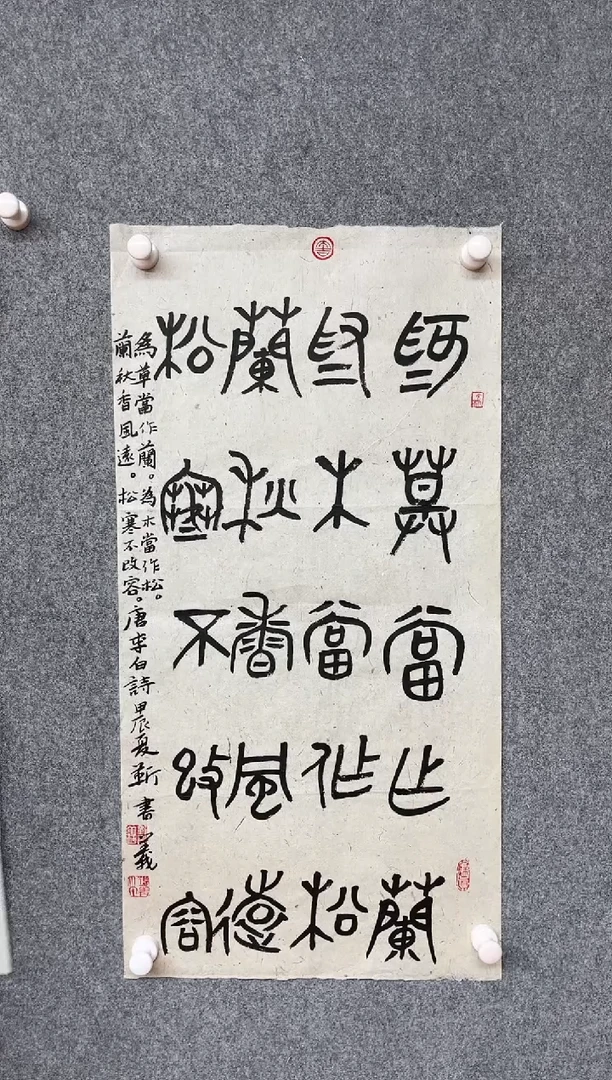 為草當作蘭
為木當作松
蘭秋香風遠
松寒不改容
為草當作蘭。為木當作松。
蘭秋香風遠。松寒不改容。唐李白詩 甲辰夏 書